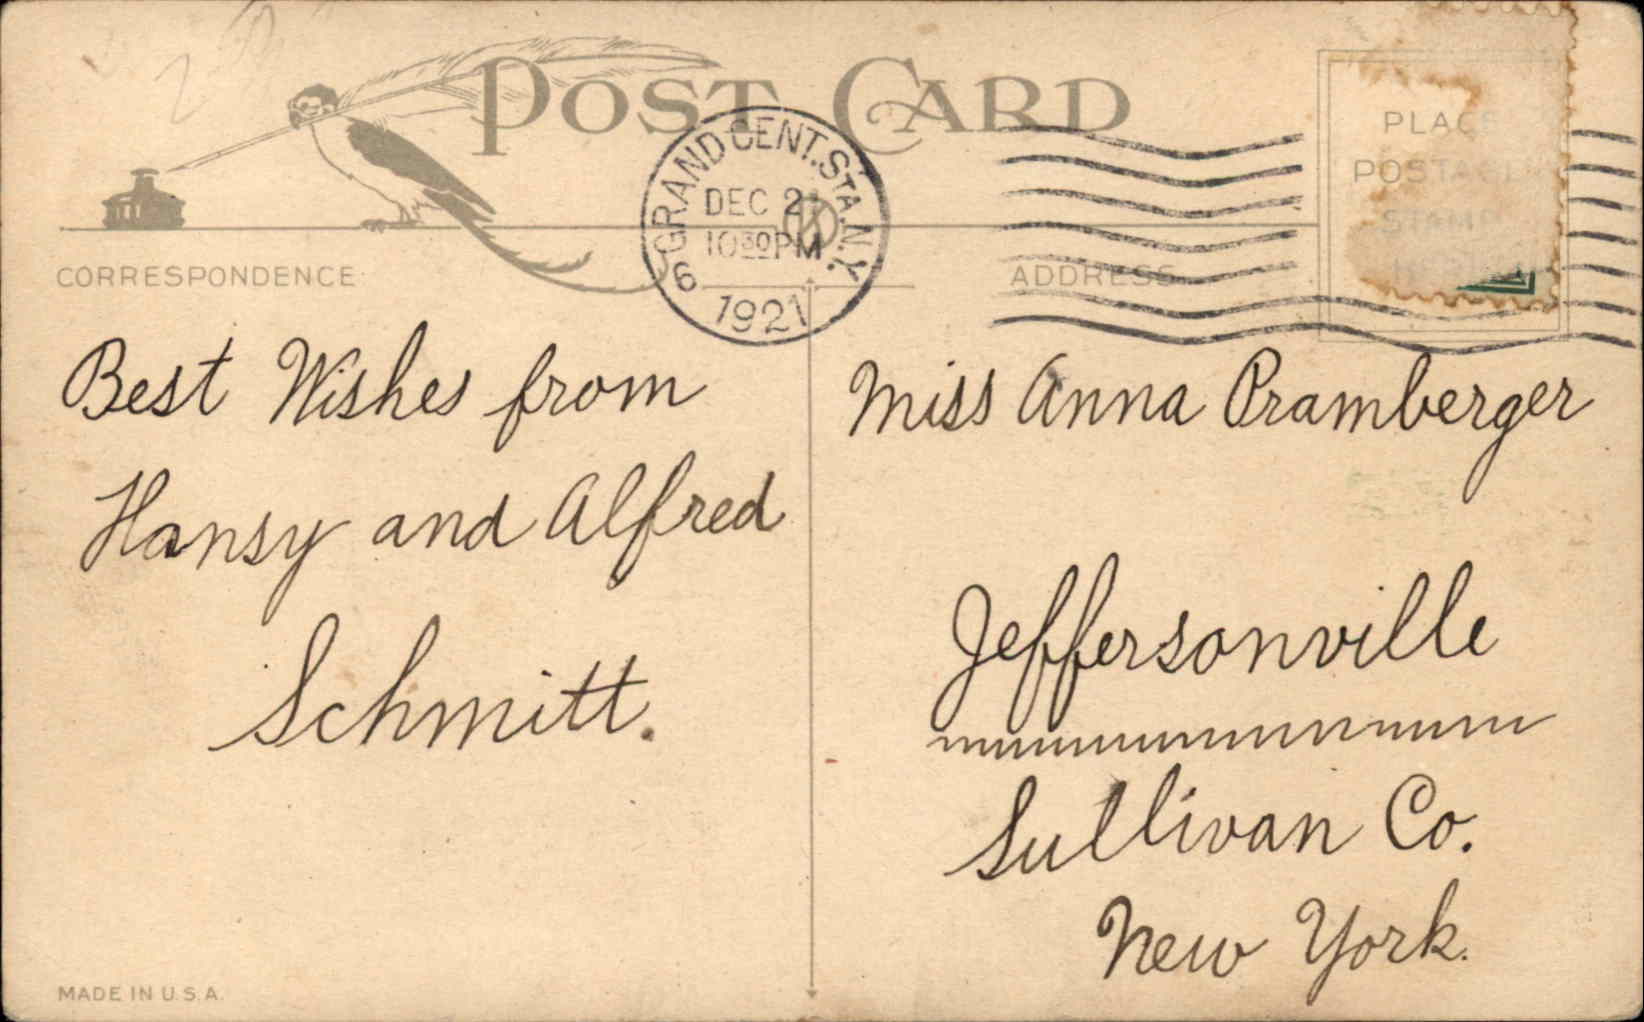 POST CARD
GRAND CENT. STA. N.Y.
DEC 2
10 30 PM
6
1921
PLACE
POSTAGE
STAMP
CORRESPONDENCE
ADDRESS
Best Wishes from
Hansy and Alfred
Schmitt.
Miss Anna Pramberger
Jeffersonville
Sullivan Co.
New York.
MADE IN U.S.A.